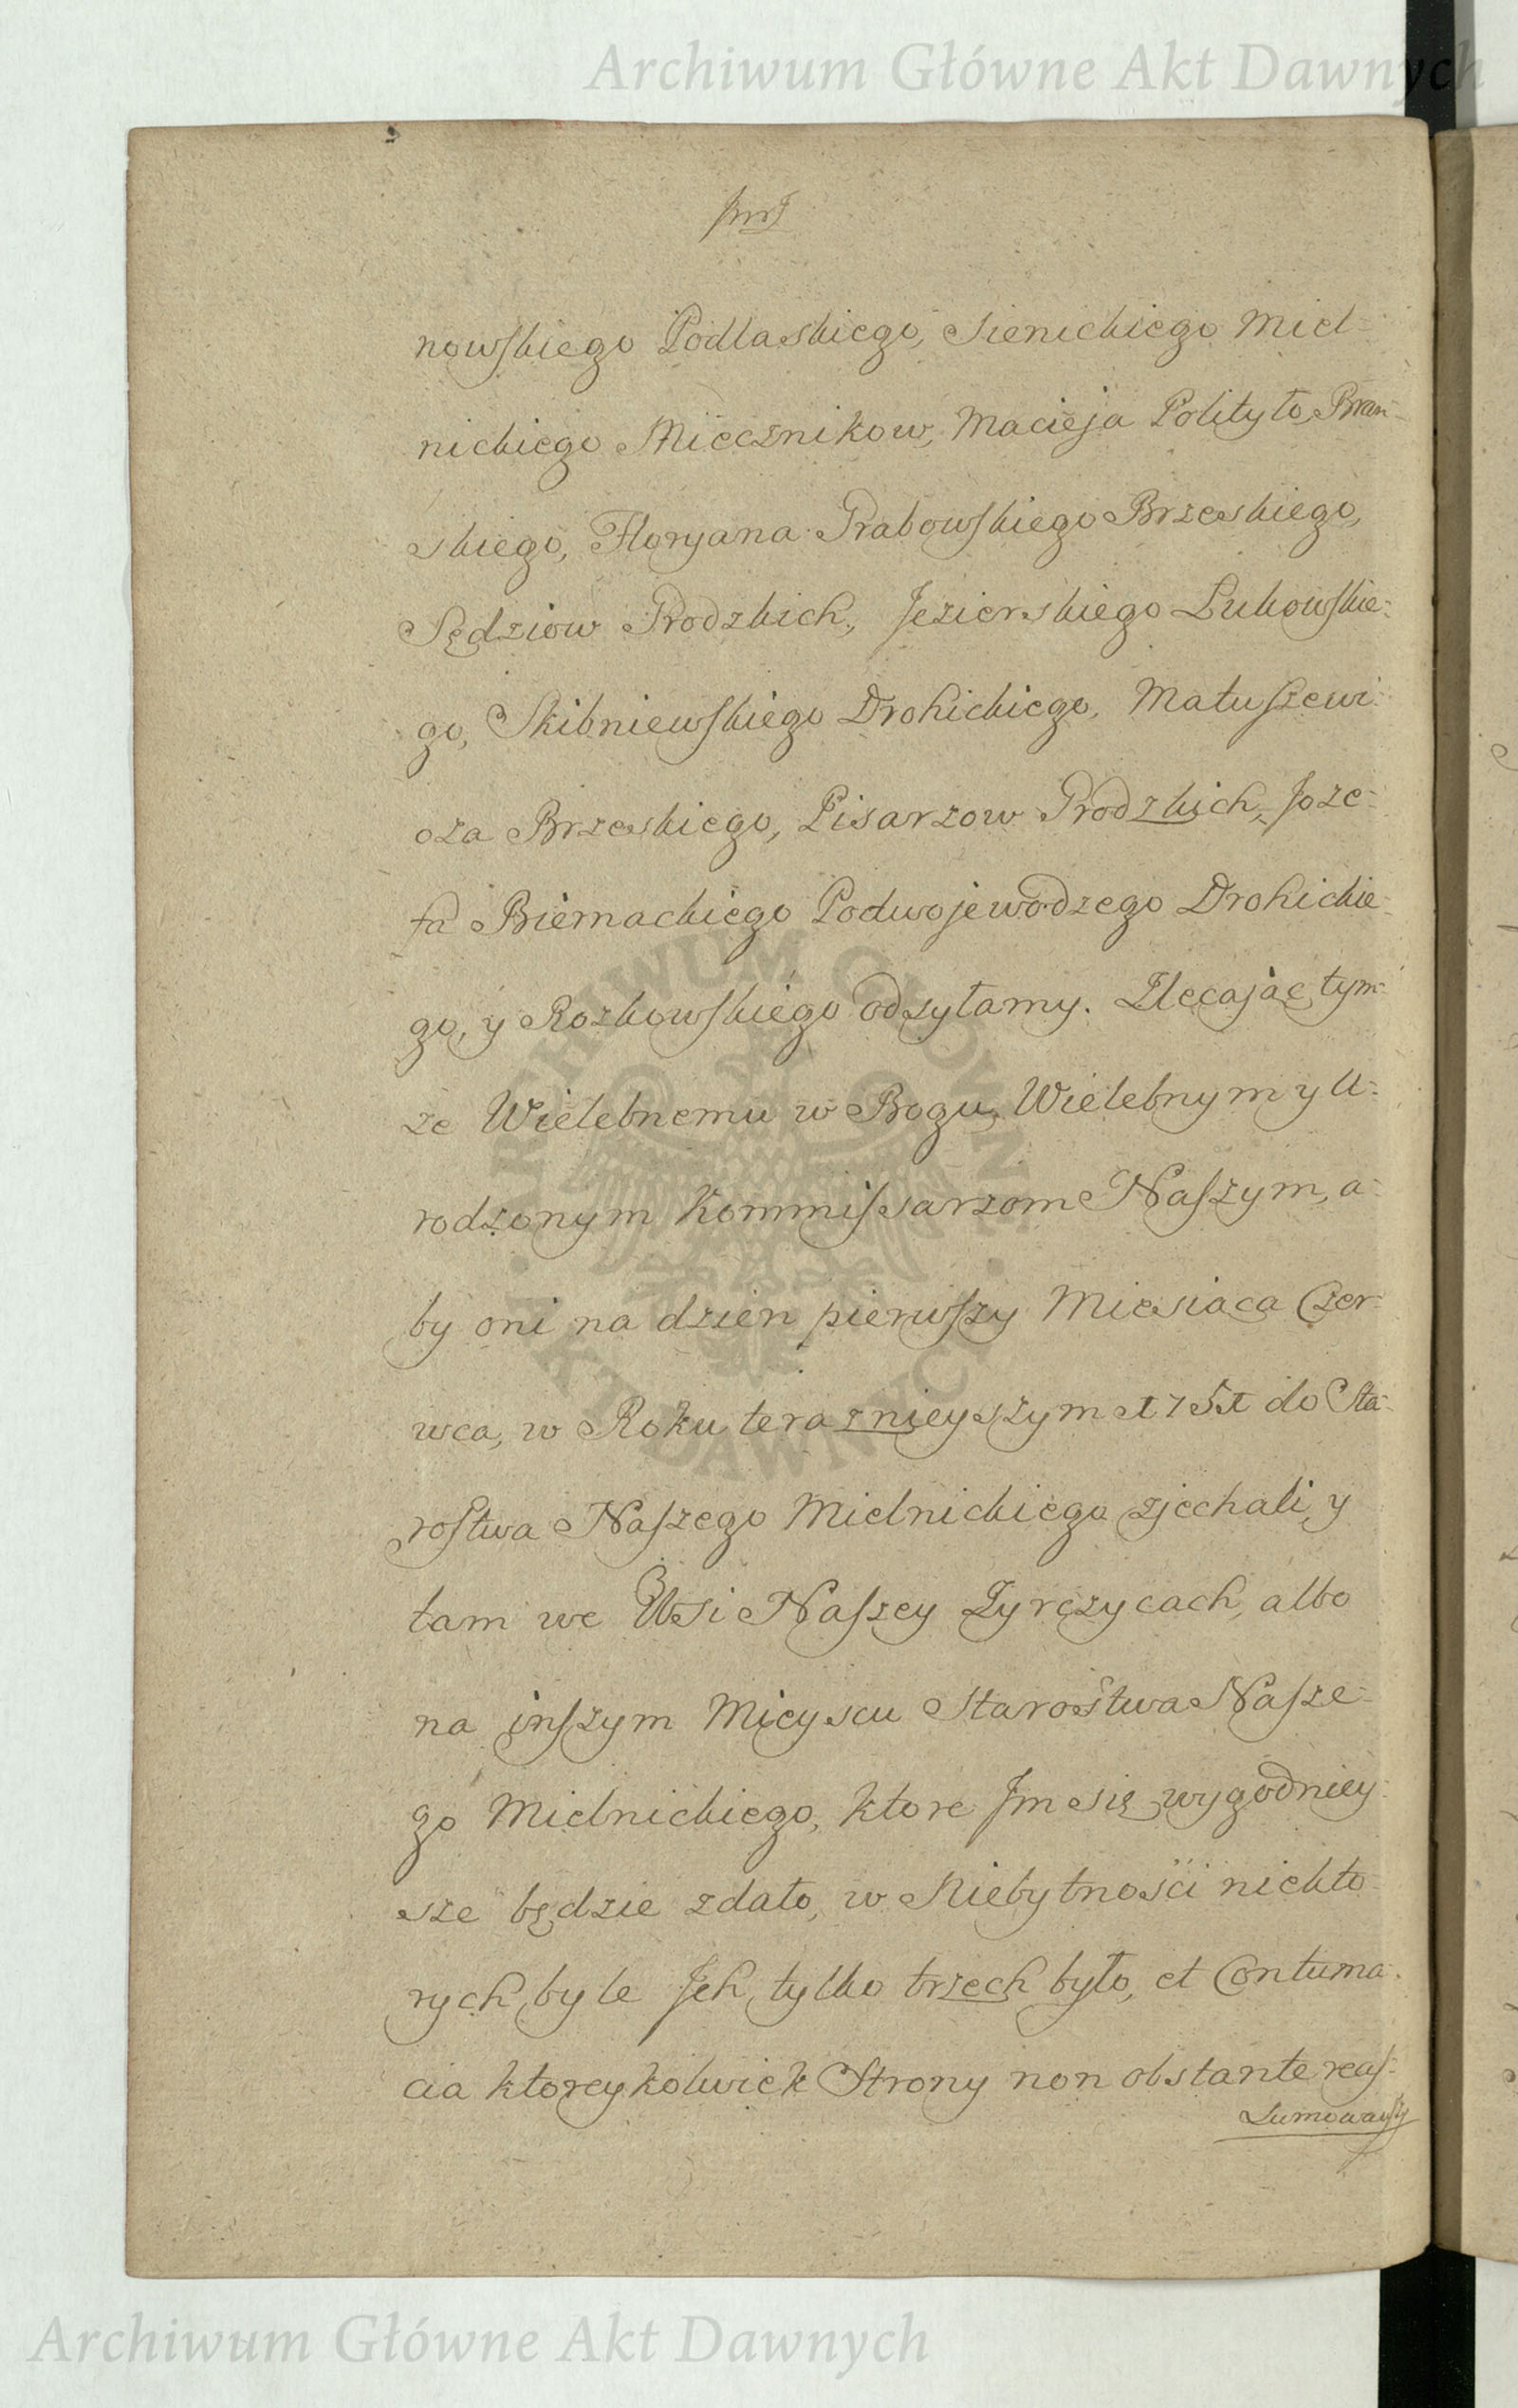 Archiwum Główne Akt Dawnych
nowskiego Podlaskiego, Sienickiego Miel-
nickiego Miecznikow, Macieja Polityło Bran-
skiego, Floryana Grabowskiego Brzeskiego,
Sędziow Grodzkich, Jezierskiego Łukowskie-
go, Skibniewskiego Drohickiego, Matuszewi-
cza Brzeskiego, Pisarzow Grodzkich, Joze-
fa Biernackiego Podwojewodzego Drohickie-
go, y Rozkowskiego odsyłamy. Zlecając tym-
że Wielebnemu w Bogu, Wielebnym y U-
rodzonym Kommissarzom Naszym, a-
by oni na dzien pierwszy Miesiąca Czer-
wca, w Roku teraznieyszym 1751 do Sta-
rostwa Naszego Mielnickiego zjechali, y
tam we Wsi Naszey Zyrczycach, albo
na inszym Mieyscu Starostwa Nasze-
go Mielnickiego, ktore Jm się wygodniey-
sze będzie zdało, w Niebytnosci niekto-
rych, byle Jch tylko trzech było, et Contuma-
cia ktoreykolwiek Strony non obstante reas-
sumowawszy
ARCHIWUM GŁÓWNE AKT DAWNYCH
Archiwum Główne Akt Dawnych